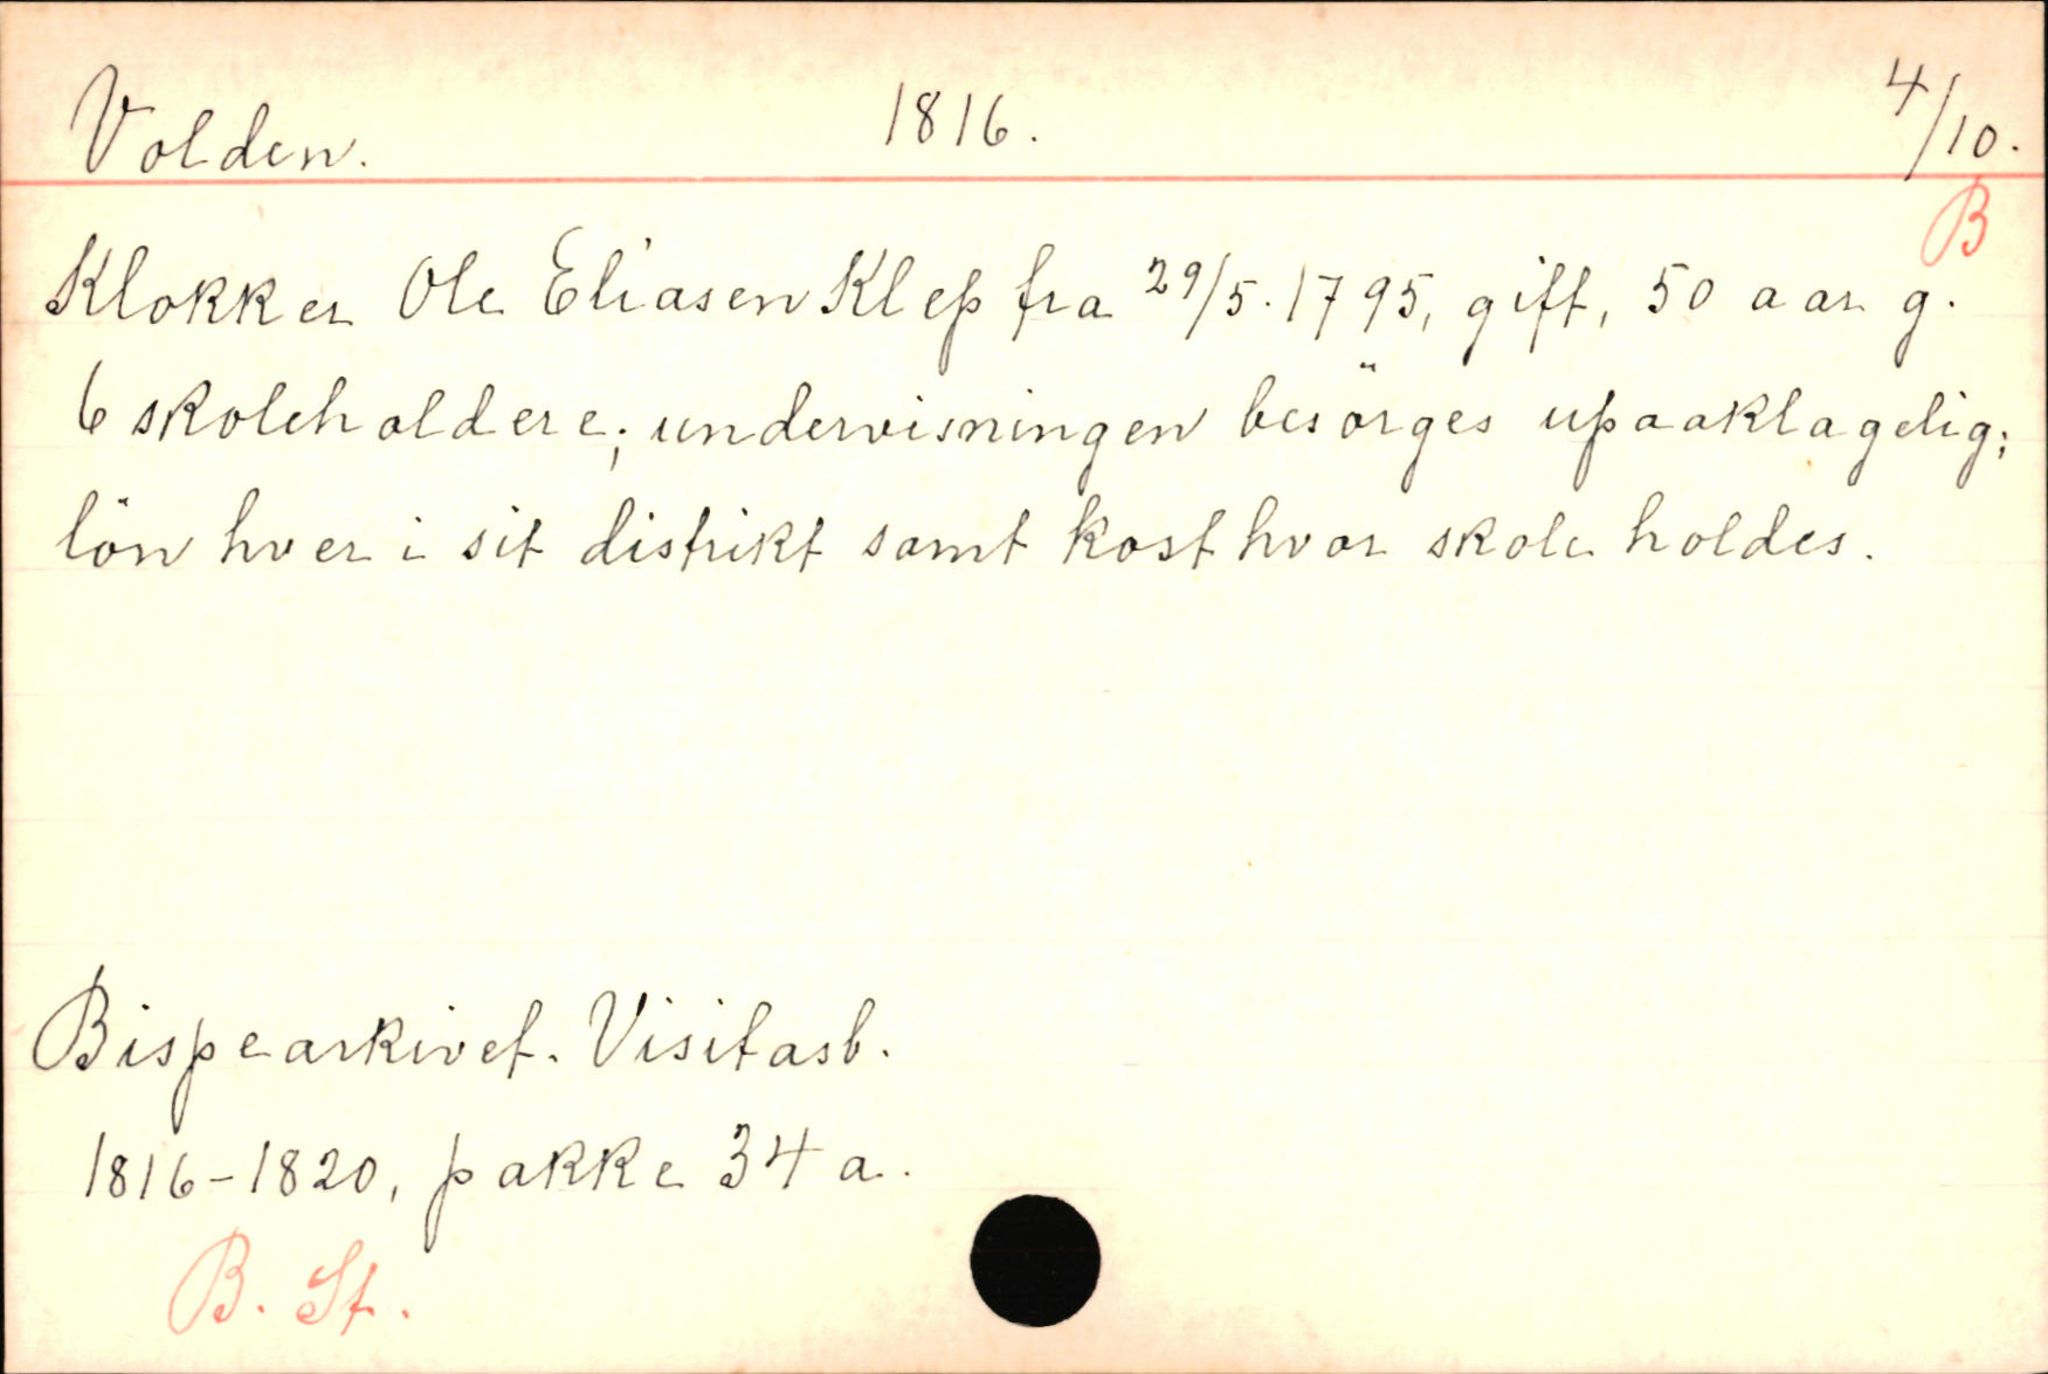 Volden. 1816. 4/10.
B
Klokker Ole Eliasen Klep fra 29/5. 1795, gift, 50 aar g.
6 skoleholdere; undervisningen besörges upaaklagelig;
lön hver i sit distrikt samt kost hvor skole holdes.
Bispearkivet. Visitasb.
1816-1820, pakke 34 a.
B. St.